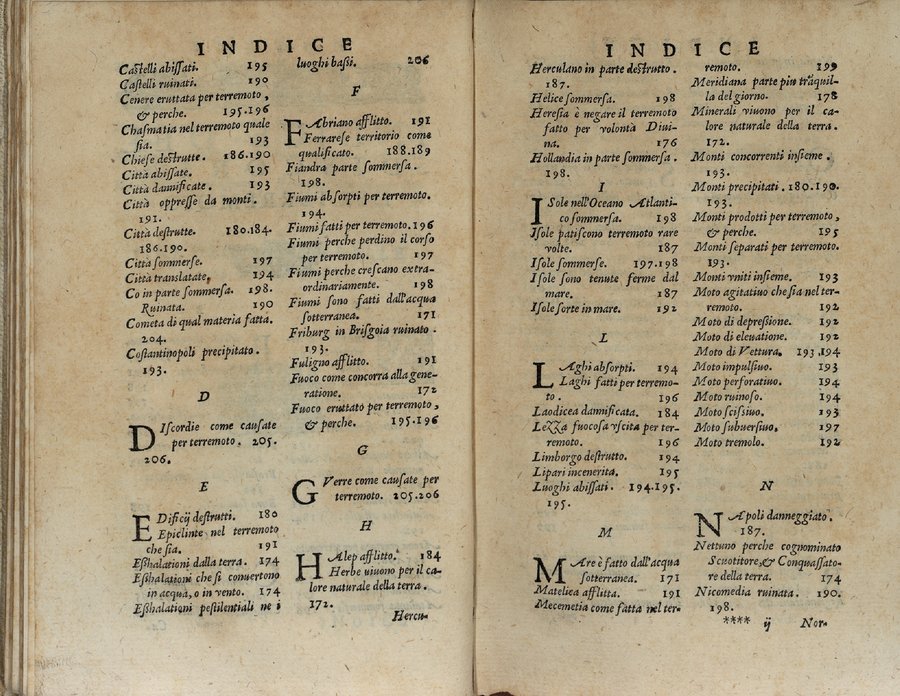 INDICE
Castelli abissati. 195
Castelli ruinati. 190
Cenere eruttata per terremoto,
& perche. 195.196
Chasmatia nel terremoto quale
sia. 193
Chiese destrutte. 186.190
Città abissate. 195
Città dannificate. 193
Città oppresse da monti.
191.
Città destrutte. 180.184.
186.190.
Città sommerse. 197
Città translatate. 194
Co in parte sommersa. 198.
Ruinata. 190
Cometa di qual materia fatta.
204.
Costantinopoli precipitato.
193.
D
DIscordie come causate
per terremoto. 205.
206.
E
EDificij destrutti. 180
Epiclinte nel terremoto
che sia. 191
Eßhalationi dalla terra. 174
Eßhalationi che si conuertono
in acqua, o in vento. 174
Eßhalationi pestilentiali ne i
luoghi baßi. 206
F
FAbriano afflitto. 191
Ferrarese territorio come
qualificato. 188.189
Fiandra parte sommersa.
198.
Fiumi absorpti per terremoto.
194.
Fiumi fatti per terremoto. 196
Fiumi perche perdino il corso
per terremoto. 197
Fiumi perche crescano extra-
ordinariamente. 198
Fiumi sono fatti dall'acqua
sotterranea. 171
Friburg in Brisgoia ruinato.
193.
Fuligno afflitto. 191
Fuoco come concorra alla gene-
ratione. 172
Fuoco eruttato per terremoto,
& perche. 195.196
G
GVerre come causate per
terremoto. 205.206
H
HAlep afflitto. 184
Herbe uiuono per il ca-
lore naturale della terra.
172.
Hercu-
INDICE
Herculano in parte destrutto.
187.
Helice sommersa. 198
Heresia è negare il terremoto
fatto per volontà Diui-
na. 176
Hollandia in parte sommersa.
198.
I
ISole nell'Oceano Atlanti-
co sommersa. 198
Isole patiscono terremoto rare
volte. 187
Isole sommerse. 197.198
Isole sono tenute ferme dal
mare. 187
Isole sorte in mare. 192
L
LAghi absorpti. 194
Laghi fatti per terremo-
to. 196
Laodicea dannificata. 184
Lezza fuocosa vscita per ter-
remoto. 196
Limborgo destrutto. 194
Lipari incenerita. 195
Luoghi abissati. 194.195.
195.
M
MAre è fatto dall'acqua
sotterranea. 171
Mateliea afflitta. 191
Mecemetia come fatta nel ter-
remoto. 199
Meridiana parte piu träquil-
la del giorno. 178
Minerali viuono per il ca-
lore naturale della terra.
172.
Monti concorrenti insieme.
193.
Monti precipitati. 180.190.
193.
Monti prodotti per terremoto,
& perche. 195
Monti separati per terremoto.
193.
Monti vniti insieme. 193
Moto agitatiuo che sia nel ter-
remoto. 192
Moto di depreßione. 192
Moto di eleuatione. 192
Moto di Vettura. 193.194
Moto impulsiuo. 193
Moto perforatiuo. 194
Moto ruinoso. 194
Moto scissiuo. 193
Moto subuersiuo. 197
Moto tremolo. 192
N
NApoli danneggiato.
187.
Nettuno perche cognominato
Scuotitore, & Conquassato-
re della terra. 174
Nicomedia ruinata. 190.
198.
**** ij Nor-